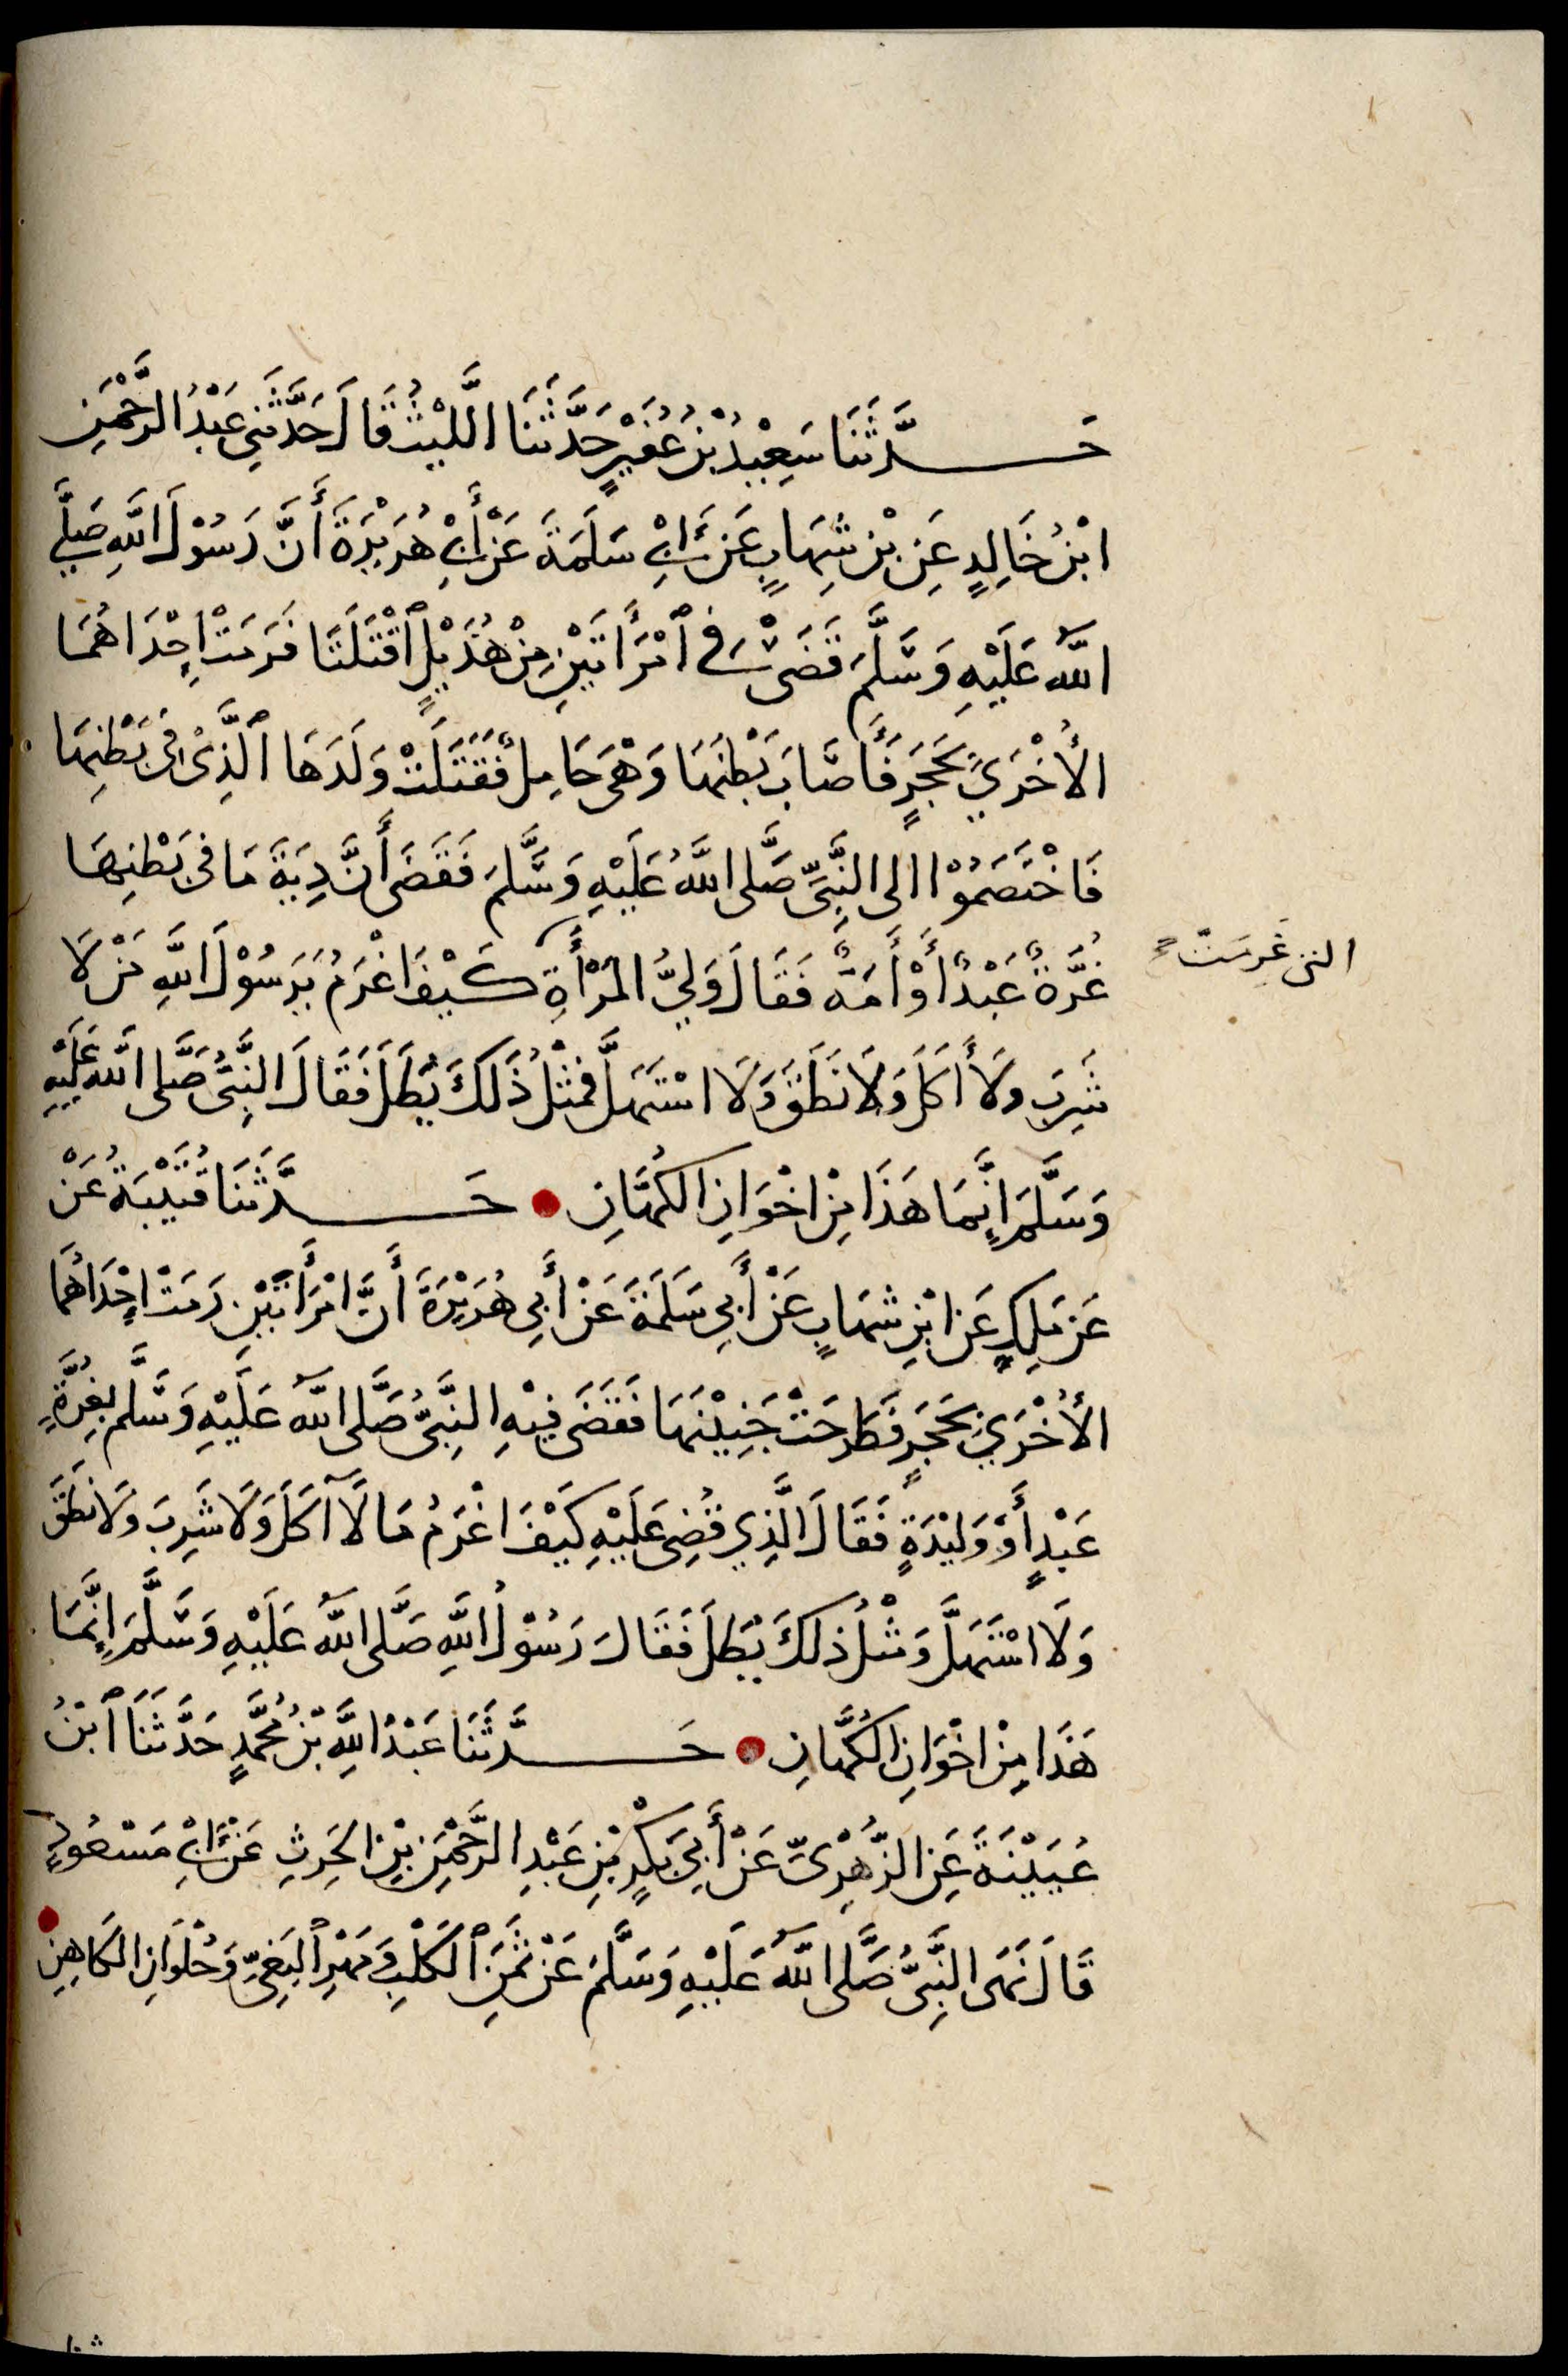 حَدَّثَنَا سَعِيْدُ بْنُ عُفَيْرٍ حَدَّثَنَا اللَّيْثُ قَالَ حَدَّثَنِي عَبْدُ الرَّحْمَنِ
ابْنُ خَالِدٍ عَنِ بْنِ شِهَابٍ عَنْ أَبِيْ سَلَمَةَ عَنْ أَبِيْ هُرَيْرَةَ أَنَّ رَسُوْلَ اللَّهِ صَلَّى
اللَّهُ عَلَيْهِ وَسَلَّمَ قَضَى فِي ٱمْرَأَتَيْنِ مِنْ هُذَيْلٍ ٱقْتَتَلَتَا فَرَمَتْ إِحْدَاهُمَا
الأُخْرَى بِحَجَرٍ فَأَصَابَ بَطْنَهَا وَهْىَ حَامِلٌ فَقَتَلَتْ وَلَدَهَا ٱلَّذِىْ فِى بَطْنِهَا
فَاخْتَصَمُوْا الى النَّبِىِّ صَلَّى اللَّهُ عَلَيْهِ وَسَلَّمَ فَقَضَى أَنَّ دِيَةَ مَا فِى بَطْنِهَا
غُرَّةٌ عَبْدٌ أَوْ أَمَةٌ فَقَالَ وَلِيُّ المَرْأَةِ كَيْفَ اغْرَمُ يَرَسُوْلَ اللَّهِ مَنْ لَا
التى غَرِمَتْ
شَرِبَ ولَا أَكَلَ وَلَا نَطَقَ وَلَا اسْتَهَلَّ فَمِثْلُ ذَلكَ يُطَلَ فَقَالَ النَّبِىُّ صَلَّى اللَّهُ عَلَيْهِ
وَسَلَّمَ إِنَّمَا هَذَا مِنْ اخْوَانِ الكُهَّانِ حَدَّثَنَا قُتَيْبَةُ عَنْ
عَن مَلِكٍ عَن ابْنِ شِهَابٍ عَنْ أَبِي سَلَمَةَ عَنْ أَبِي هُرَيْرَةَ أَنَّ امْرَأَتَيْنِ رَمَتْ إِحْدَاهُمَا
الأُخْرَى بِحَجَرٍ فَطَرَحَتْ جَنِيْنَهَا فَقَضَى فِيْهِ النَّبِىُّ صَلَّى اللَّهُ عَلَيْهِ وَسَلَّم بِغُرَّةٍ
عَبْدٍ أَوْ وَلِيْدَةٍ فَقَالَ الَّذِي قُضِىَ عَلَيْهِ كَيْفَ اغْرَمُ مَا لَا أكَلَ وَلَا شَرِبَ وَلَا نَطَقَ
وَلَا اسْتَهَلَّ وَمثْلُ ذلكَ يُطَلَ فَقَالَ رَسُوْلُ اللَّهِ صَلَّى اللَّهُ عَلَيْهِ وَسَلَّمَ إِنَّمَا
هَذَا مِنْ اخْوَانِ الكُهَّانِ حَدَّثَنَا عَبْدُ اللَّهِ بْنُ مُحَمَّدٍ حَدَّثَنَا ٱبْنُ
عُيَيْنَةَ عَنِ الزُّهْرِىِّ عَنْ أَبِى بَكْرِ بْنِ عَبْدِ الرَّحْمَنِ بْنِ الحَرِثِ عَنْ أَبِيْ مَسْعُودٍ
قَالَ نَهَى النَّبِىُّ صَلَّى اللَّهُ عَلَيْهِ وَسَلَّمَ عَنْ ثَمَنِ ٱلكَلْبِ وَمَهْرِ ٱلبَغِىِّ وَحُلْوَانِ الكَاهِنِ